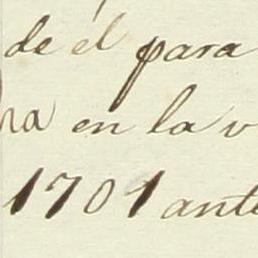 de el para
na en la v
1701 ante